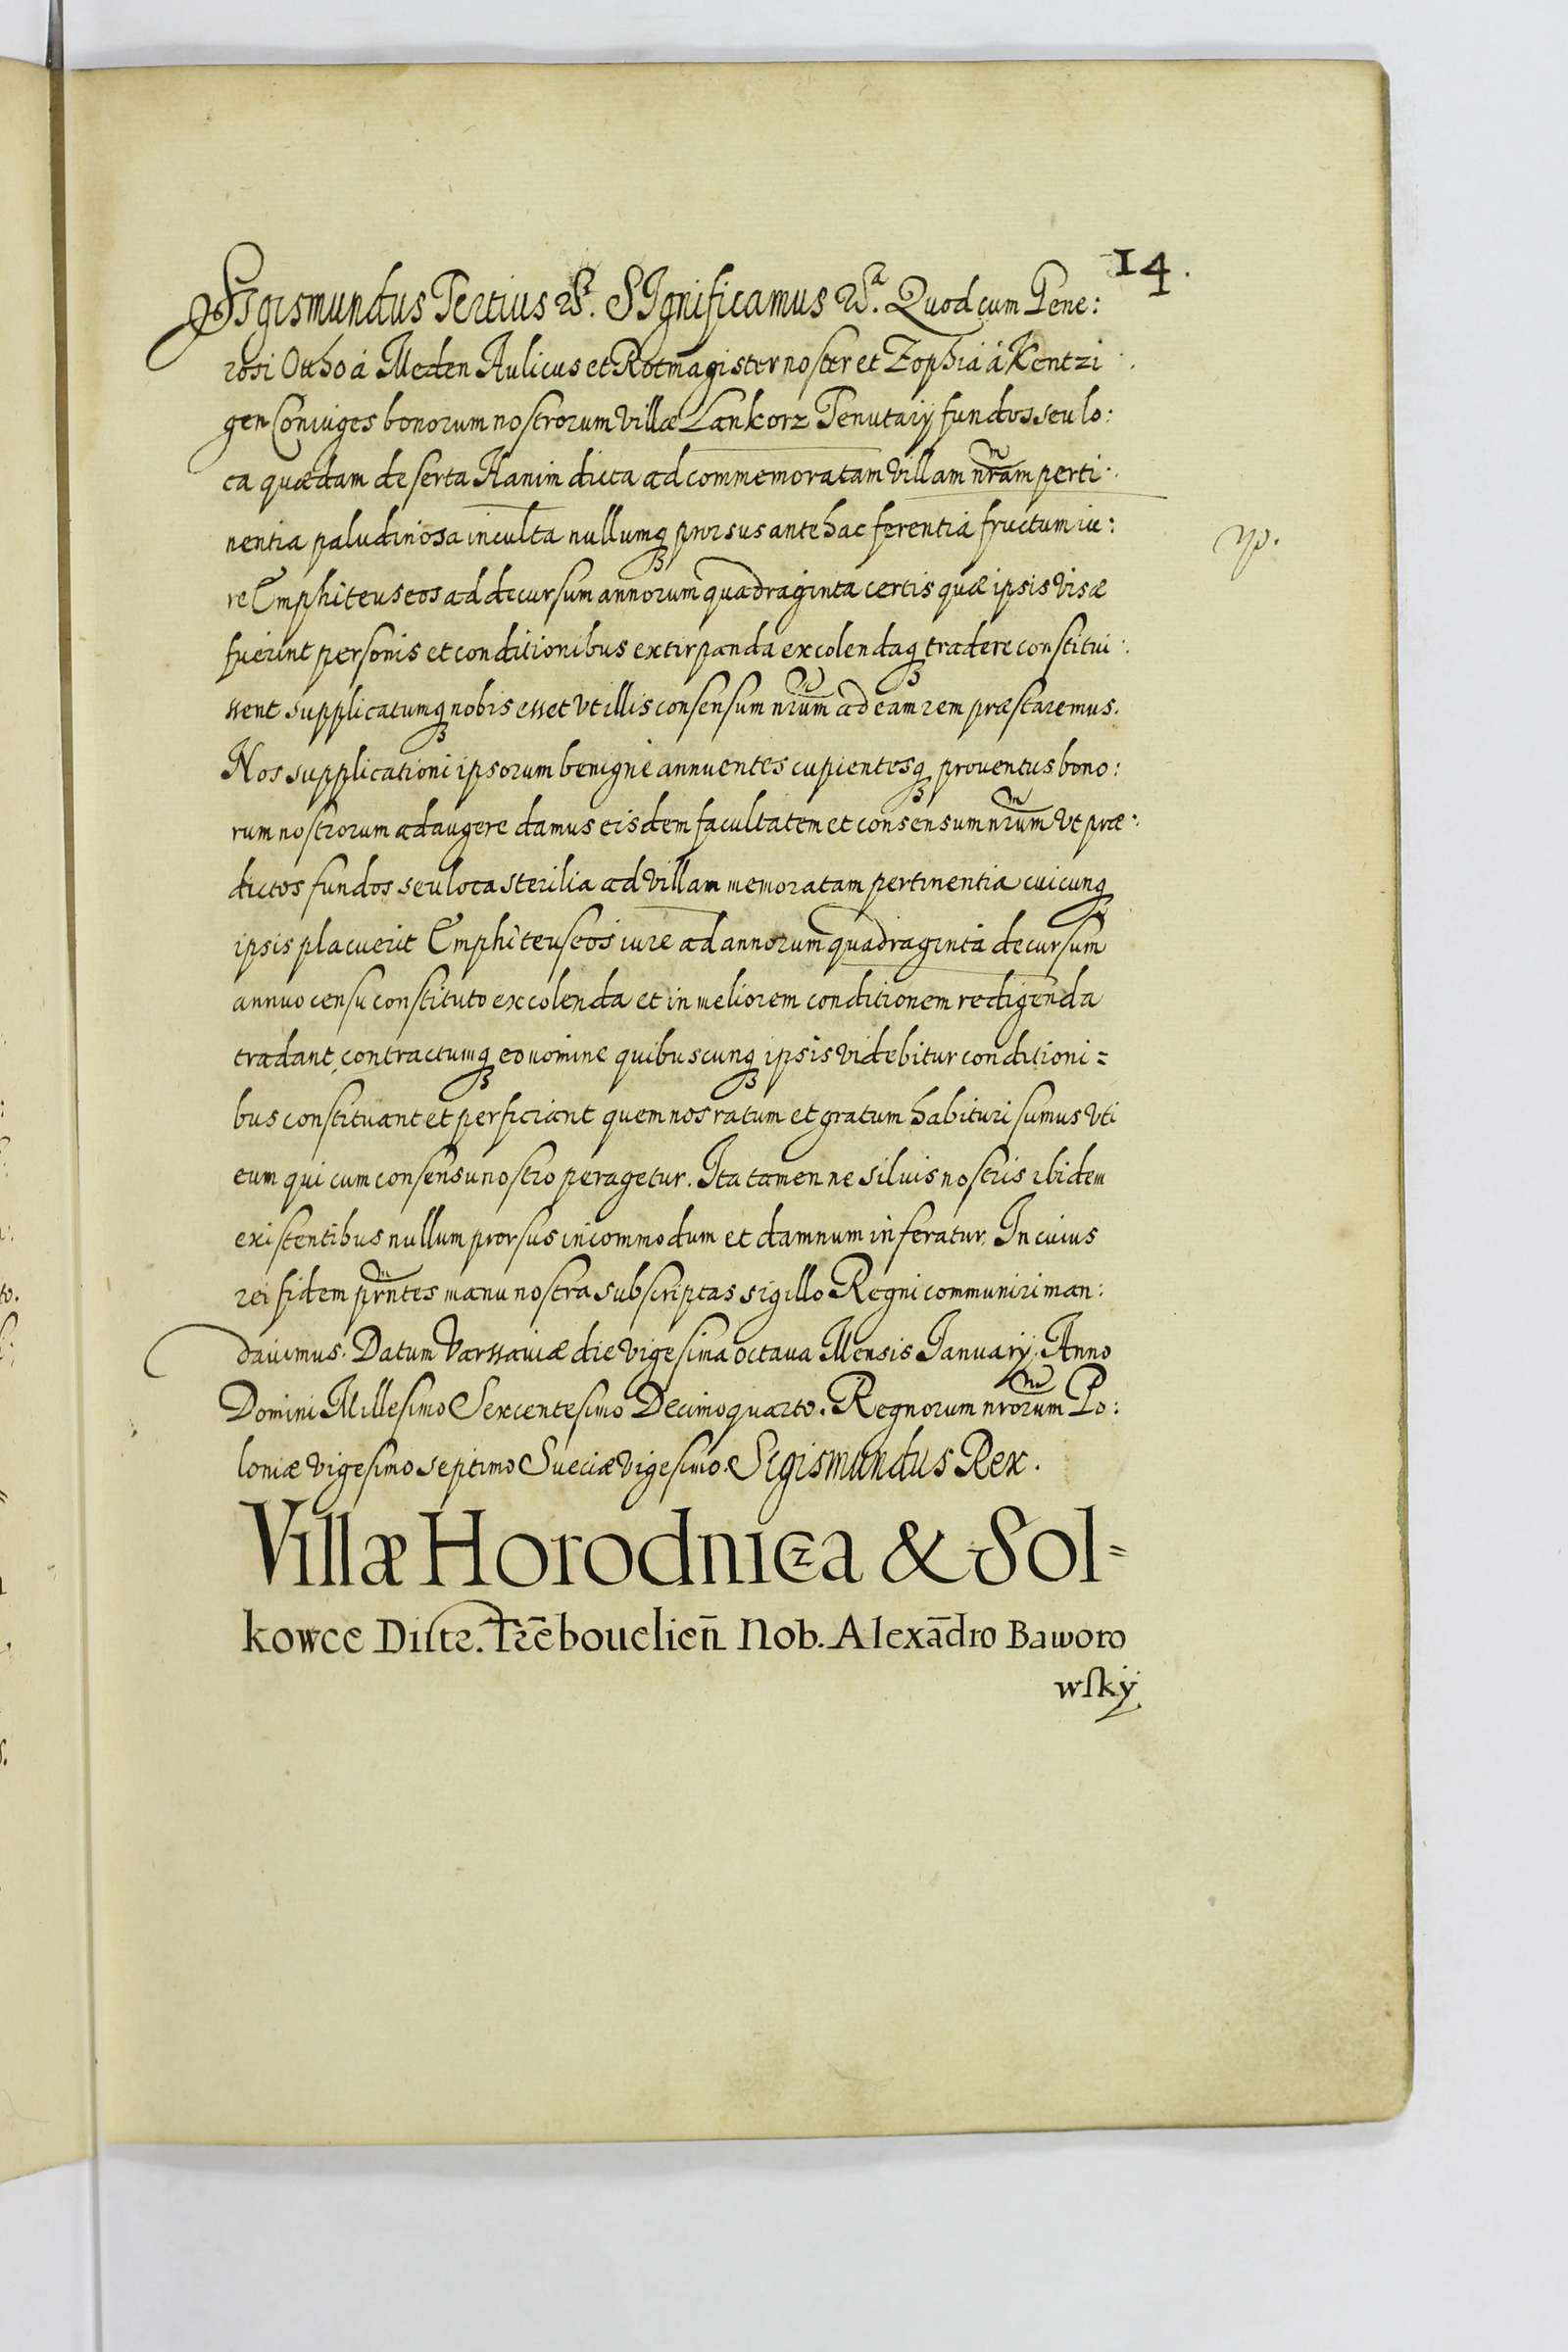 14.
Sigismundus Tertius etc. SIgnificamus etc. Quod cum Gene:
rosi Ottho á Meden Aulicus et Rotmagister noster et Zophia á Kentzi
gen Coniuges bonorum nostrorum villæ Lankorz Tenutarij fundos seu lo:
ca quædam deserta Hanim dicta ad commemoratam villam nram perti:
nentia paludinosa inculta nullumq prorsus antehac ferentia fructum iu:
re Emphiteuseos ad decursum annorum quadraginta certis quæ ipsis visæ
fuerint personis et conditionibus extirpanda excolendaq tradere constitui:
ssent supplicatumq nobis esset vt illis consensum nrum ad eam rem præstaremus.
Nos supplicationi ipsorum benigne annuentes cupientesq prouentus bono:
rum nostrorum adaugere damus eisdem facultatem et consensum nrum vt præ:
dictos fundos seu loca sterilia ad villam memoratam pertinentia cuicunq
ipsis placuerit Emphiteuseos iure ad annorum quadraginta decursum
annuo censu constituto excolenda et in meliorem conditionem redigenda
tradant contractumq eo nomine quibuscunq ipsis videbitur conditioni=
bus constituant et perficiant quem nos ratum et gratum habituri sumus vti
eum qui cum consensu nostro peragetur. Ita tamen ne siluis nostris ibidem
existentibus nullum prorsus incommodum et damnum inferatur. In cuius
rei fidem prntes manu nostra subscriptas sigillo Regni communiri man:
dauimus. Datum Varssauiæ die vigesima octaua Mensis Ianuarij. Anno
Domini Millesimo Sexcentesimo Decimoquarto. Regnorum nrorum Po:
loniæ vigesimo septimo Sueciæ vigesimo. Sigismundus Rex.
Villæ Horodnicza & Sol=
kowce Distr. Trēbouelien̄ Nob. Alexādro Baworo
wsky